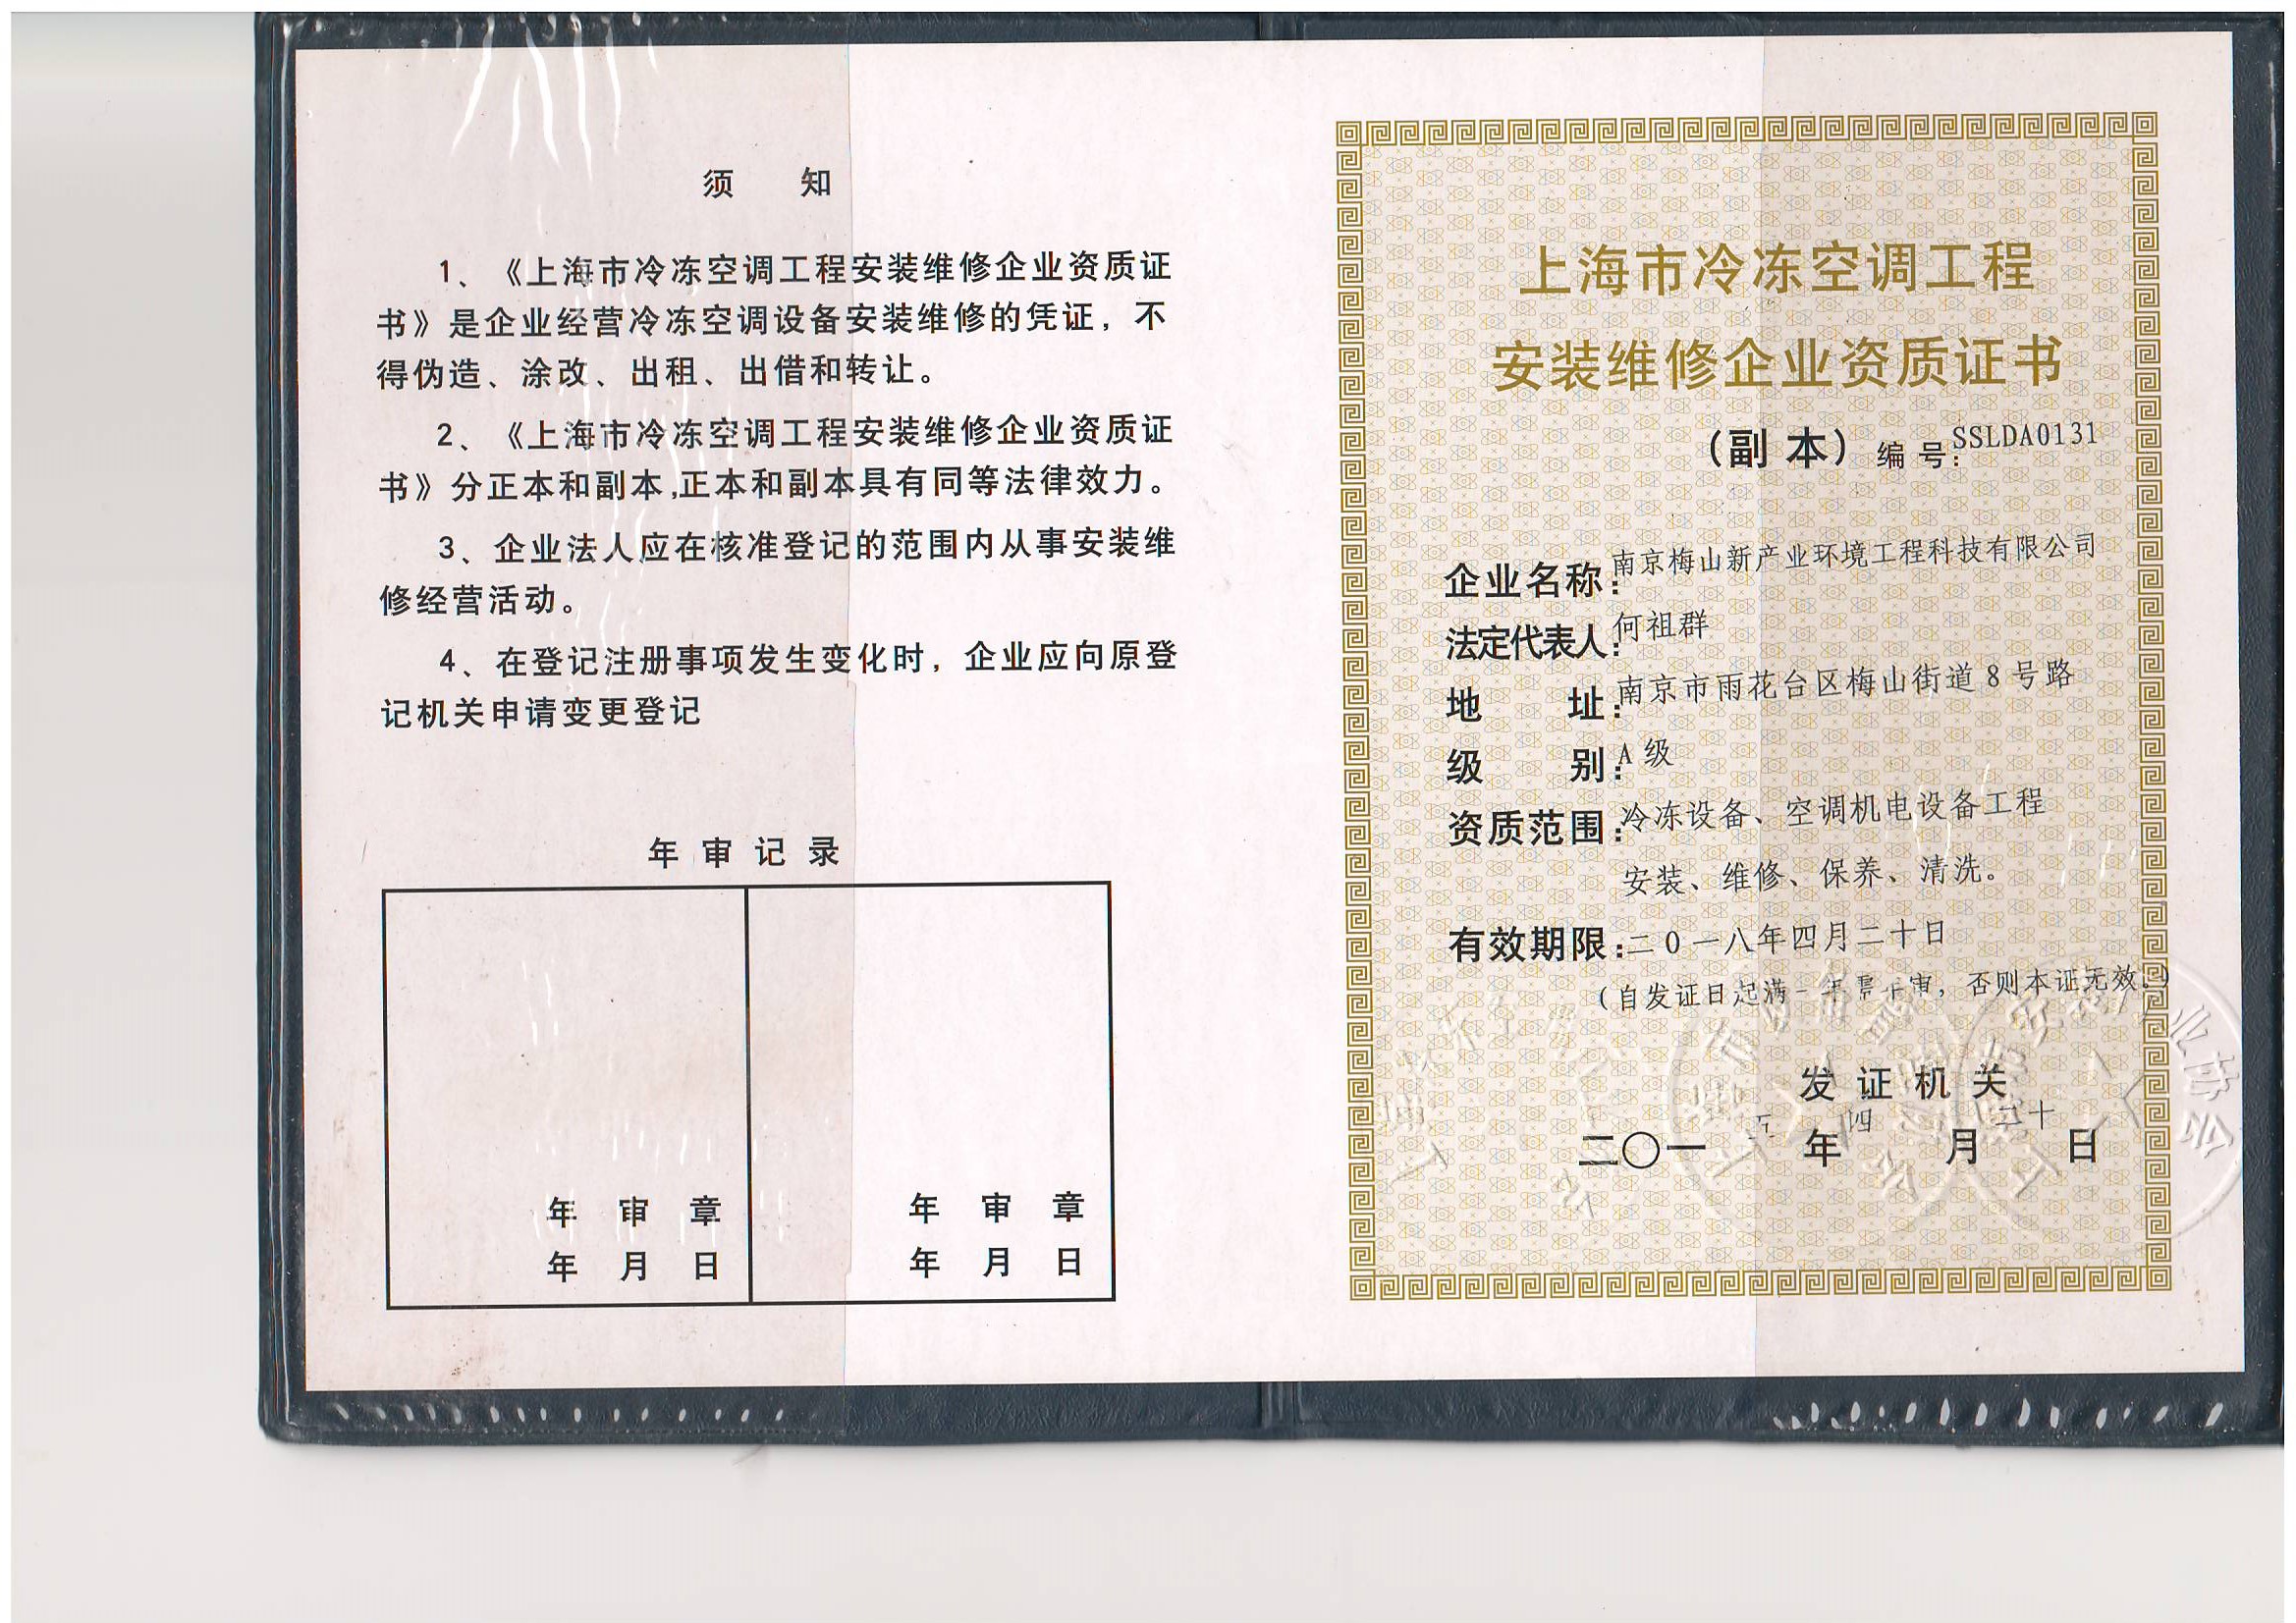 须 知
1、《上海市冷冻空调工程安装维修企业资质证
书》是企业经营冷冻空调设备安装维修的凭证，不
得伪造、涂改、出租、出借和转让。
2、《上海市冷冻空调工程安装维修企业资质证
书》分正本和副本,正本和副本具有同等法律效力。
3、企业法人应在核准登记的范围内从事安装维
修经营活动。
4、在登记注册事项发生变化时，企业应向原登
记机关申请变更登记
年审记录
年 审 章
年 月 日
年 审 章
年 月 日
上海市冷冻空调工程
安装维修企业资质证书
（副 本） 编 号：SSLDA0131
企业名称：南京梅山新产业环境工程科技有限公司
法定代表人：何祖群
地 址：南京市雨花台区梅山街道 8 号路
级 别：A 级
资质范围：冷冻设备、空调机电设备工程
安装、维修、保养、清洗。
有效期限：二0一八年四月二十日
（自发证日起满一年需年审，否则本证无效。）
发证机关
二〇一五年四月二十日